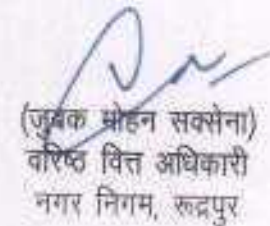 (जुबक मोहन सक्सेना)
वरिष्ठ वित्त अधिकारी
नगर निगम, रूद्रपुर